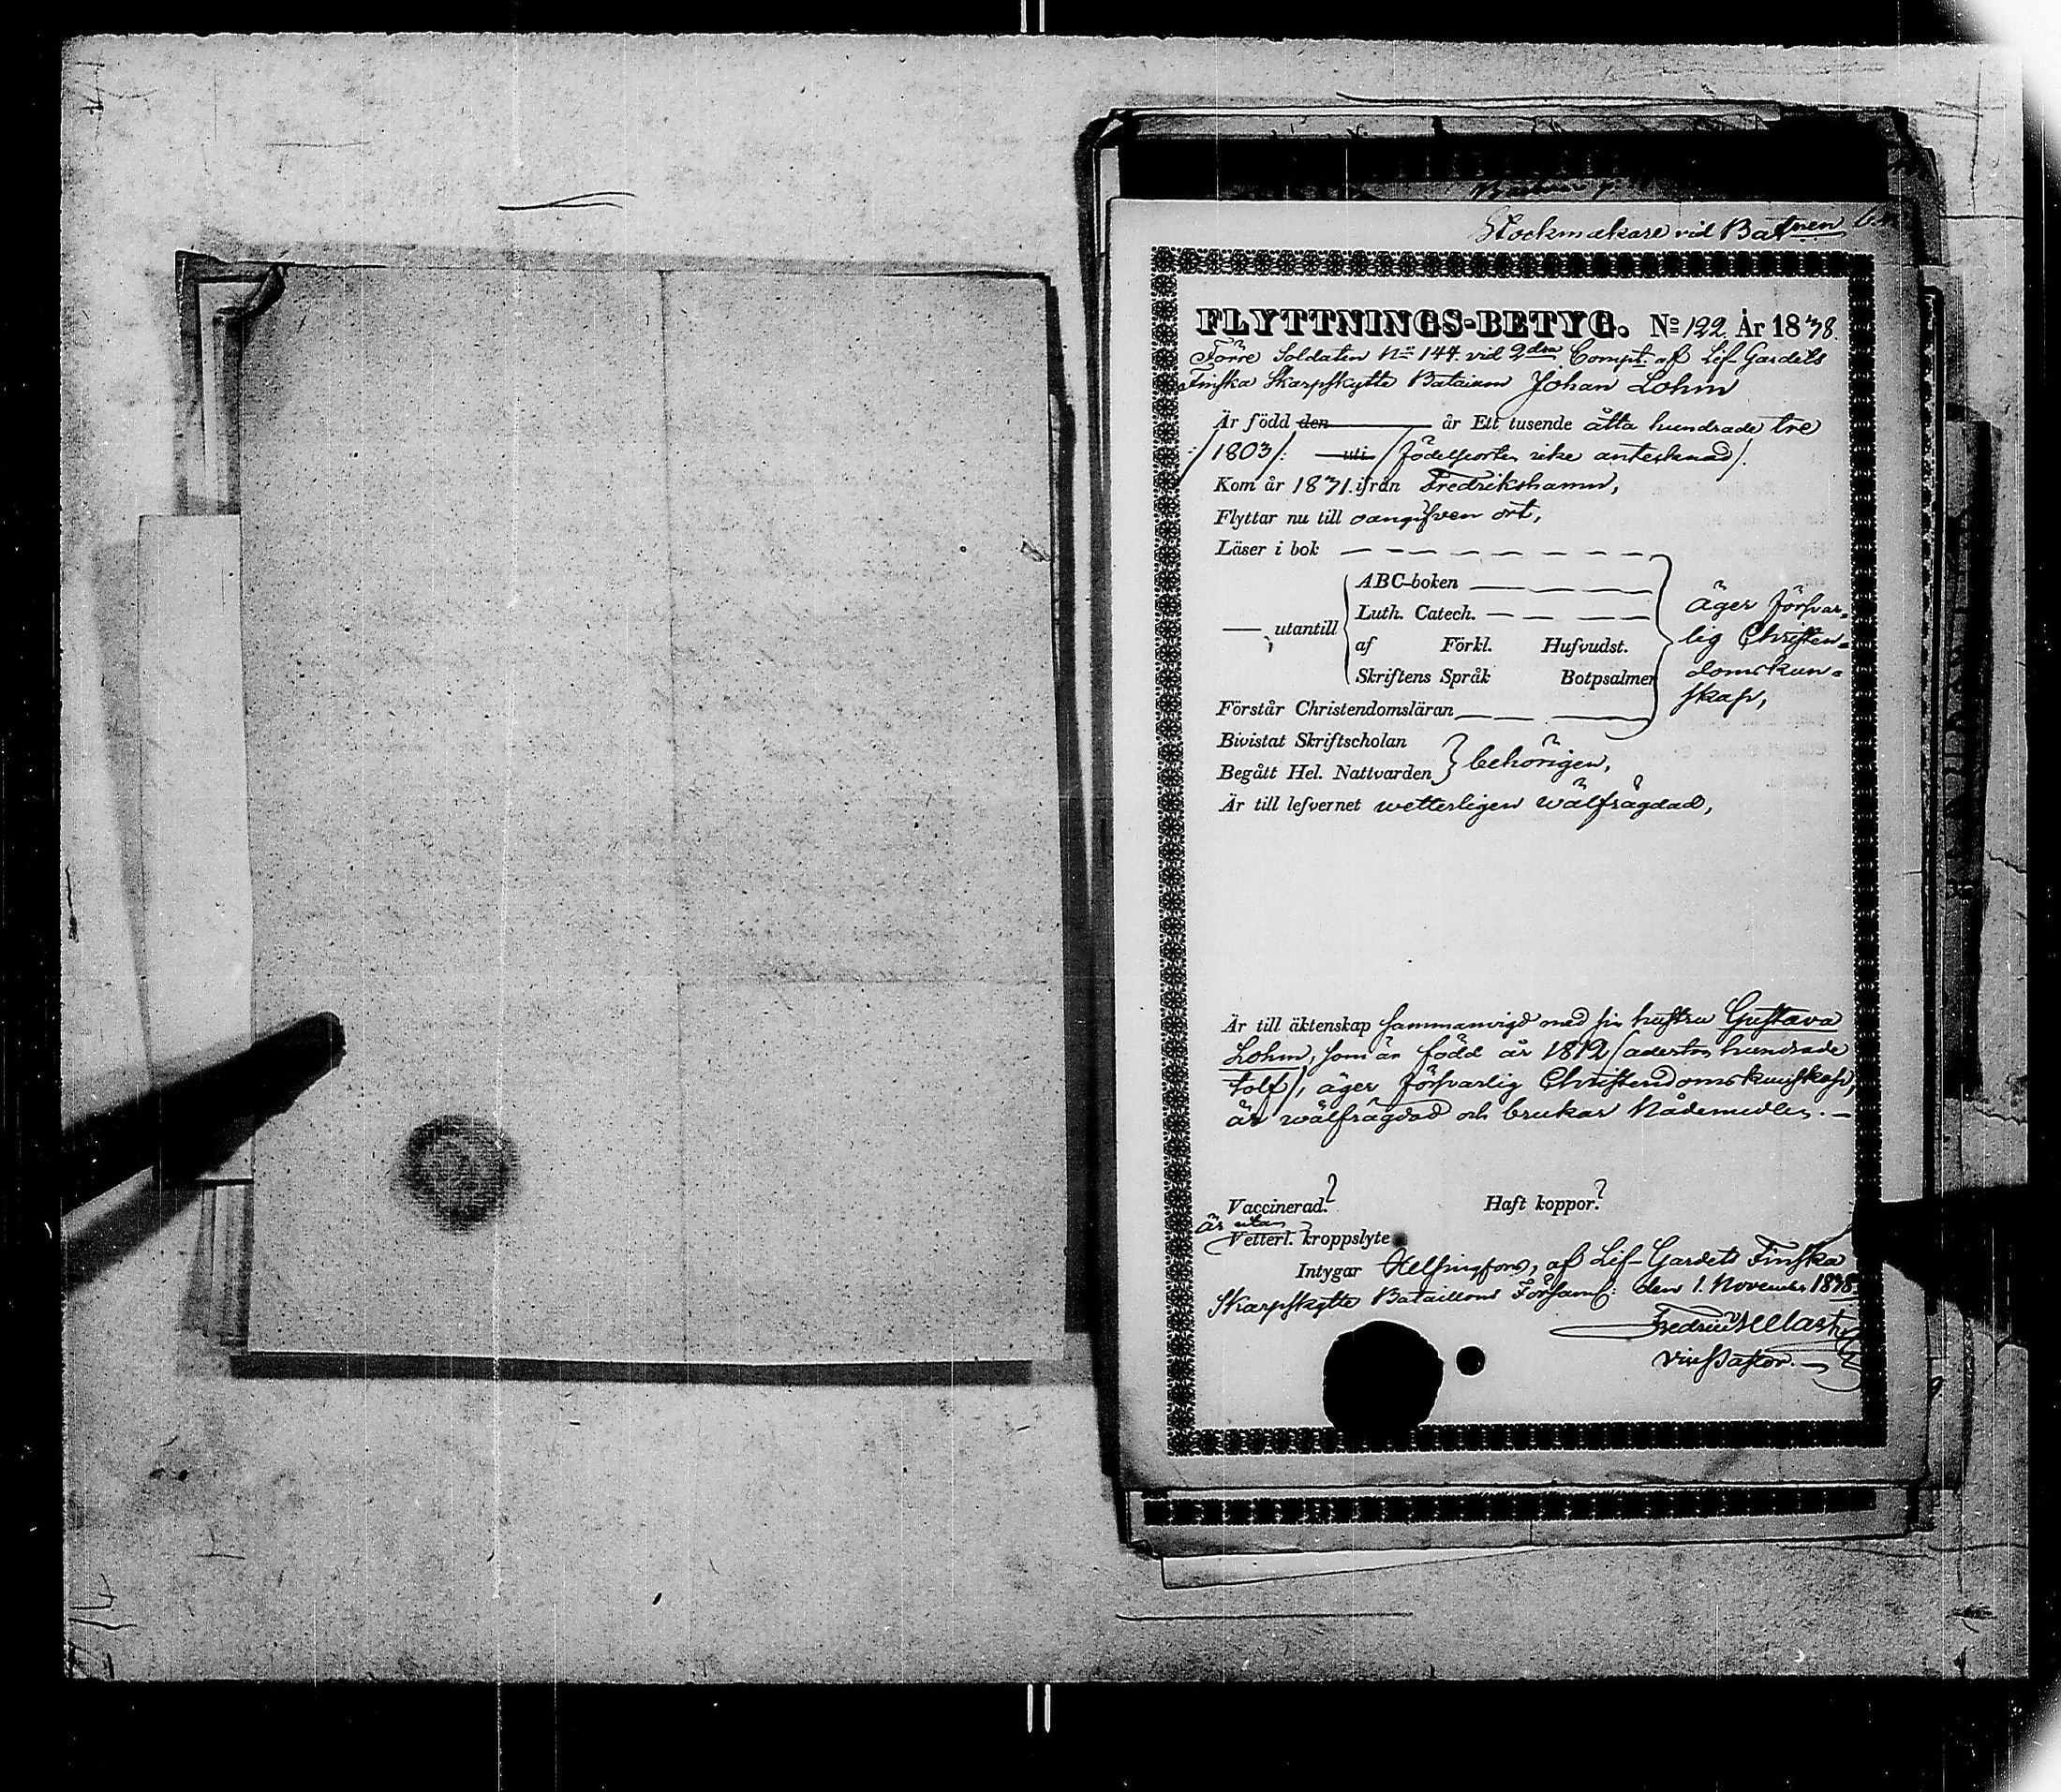 Stockmakare vid Batnen
FLYTTNINGS-BETYG. No 122 År 1838.
Förre Soldaten No 144. vid 2dra Compt. af Lif-Gardets
Finska Skarpskytte Bataison Johan Lohm
Är född den år Ett tusende åtta hundrade tre
/:1803/: uti /födelseorten icke antecknad/.
Kom år 1831. ifrån Fredrikshamn,
Flyttar nu till oangifven ort,
Läser i bok
ABC-boken
äger försvar=
Luth. Catech.
utantill
lig Christen=
af Förkl. Hufvudst.
domskun=
Skriftens Språk Botpsalmer
skap,
Förstår Christendomsläran
Bivistat Skriftscholan
behörigen,
Begått Hel. Nattvarden
Är till lefvernet wetterligen wälfrägdad,
Är till äktenskap sammanvigd med sin hustru Gustava
Lohm, som är född år 1812 /aderton hundrade
tolf/, äger försvarlig Christendomskunskap,
är wälfrägdad och brukar Nådemedlen. —
Vaccinerad? Haft koppor?
är utan
Vetterl. kroppslyte
Intygar Helsingfors, af Lif-Gardets Finska
Skarpskytte Bataillons Församl: den 1. November 1838.
Fredric
vicePastor.